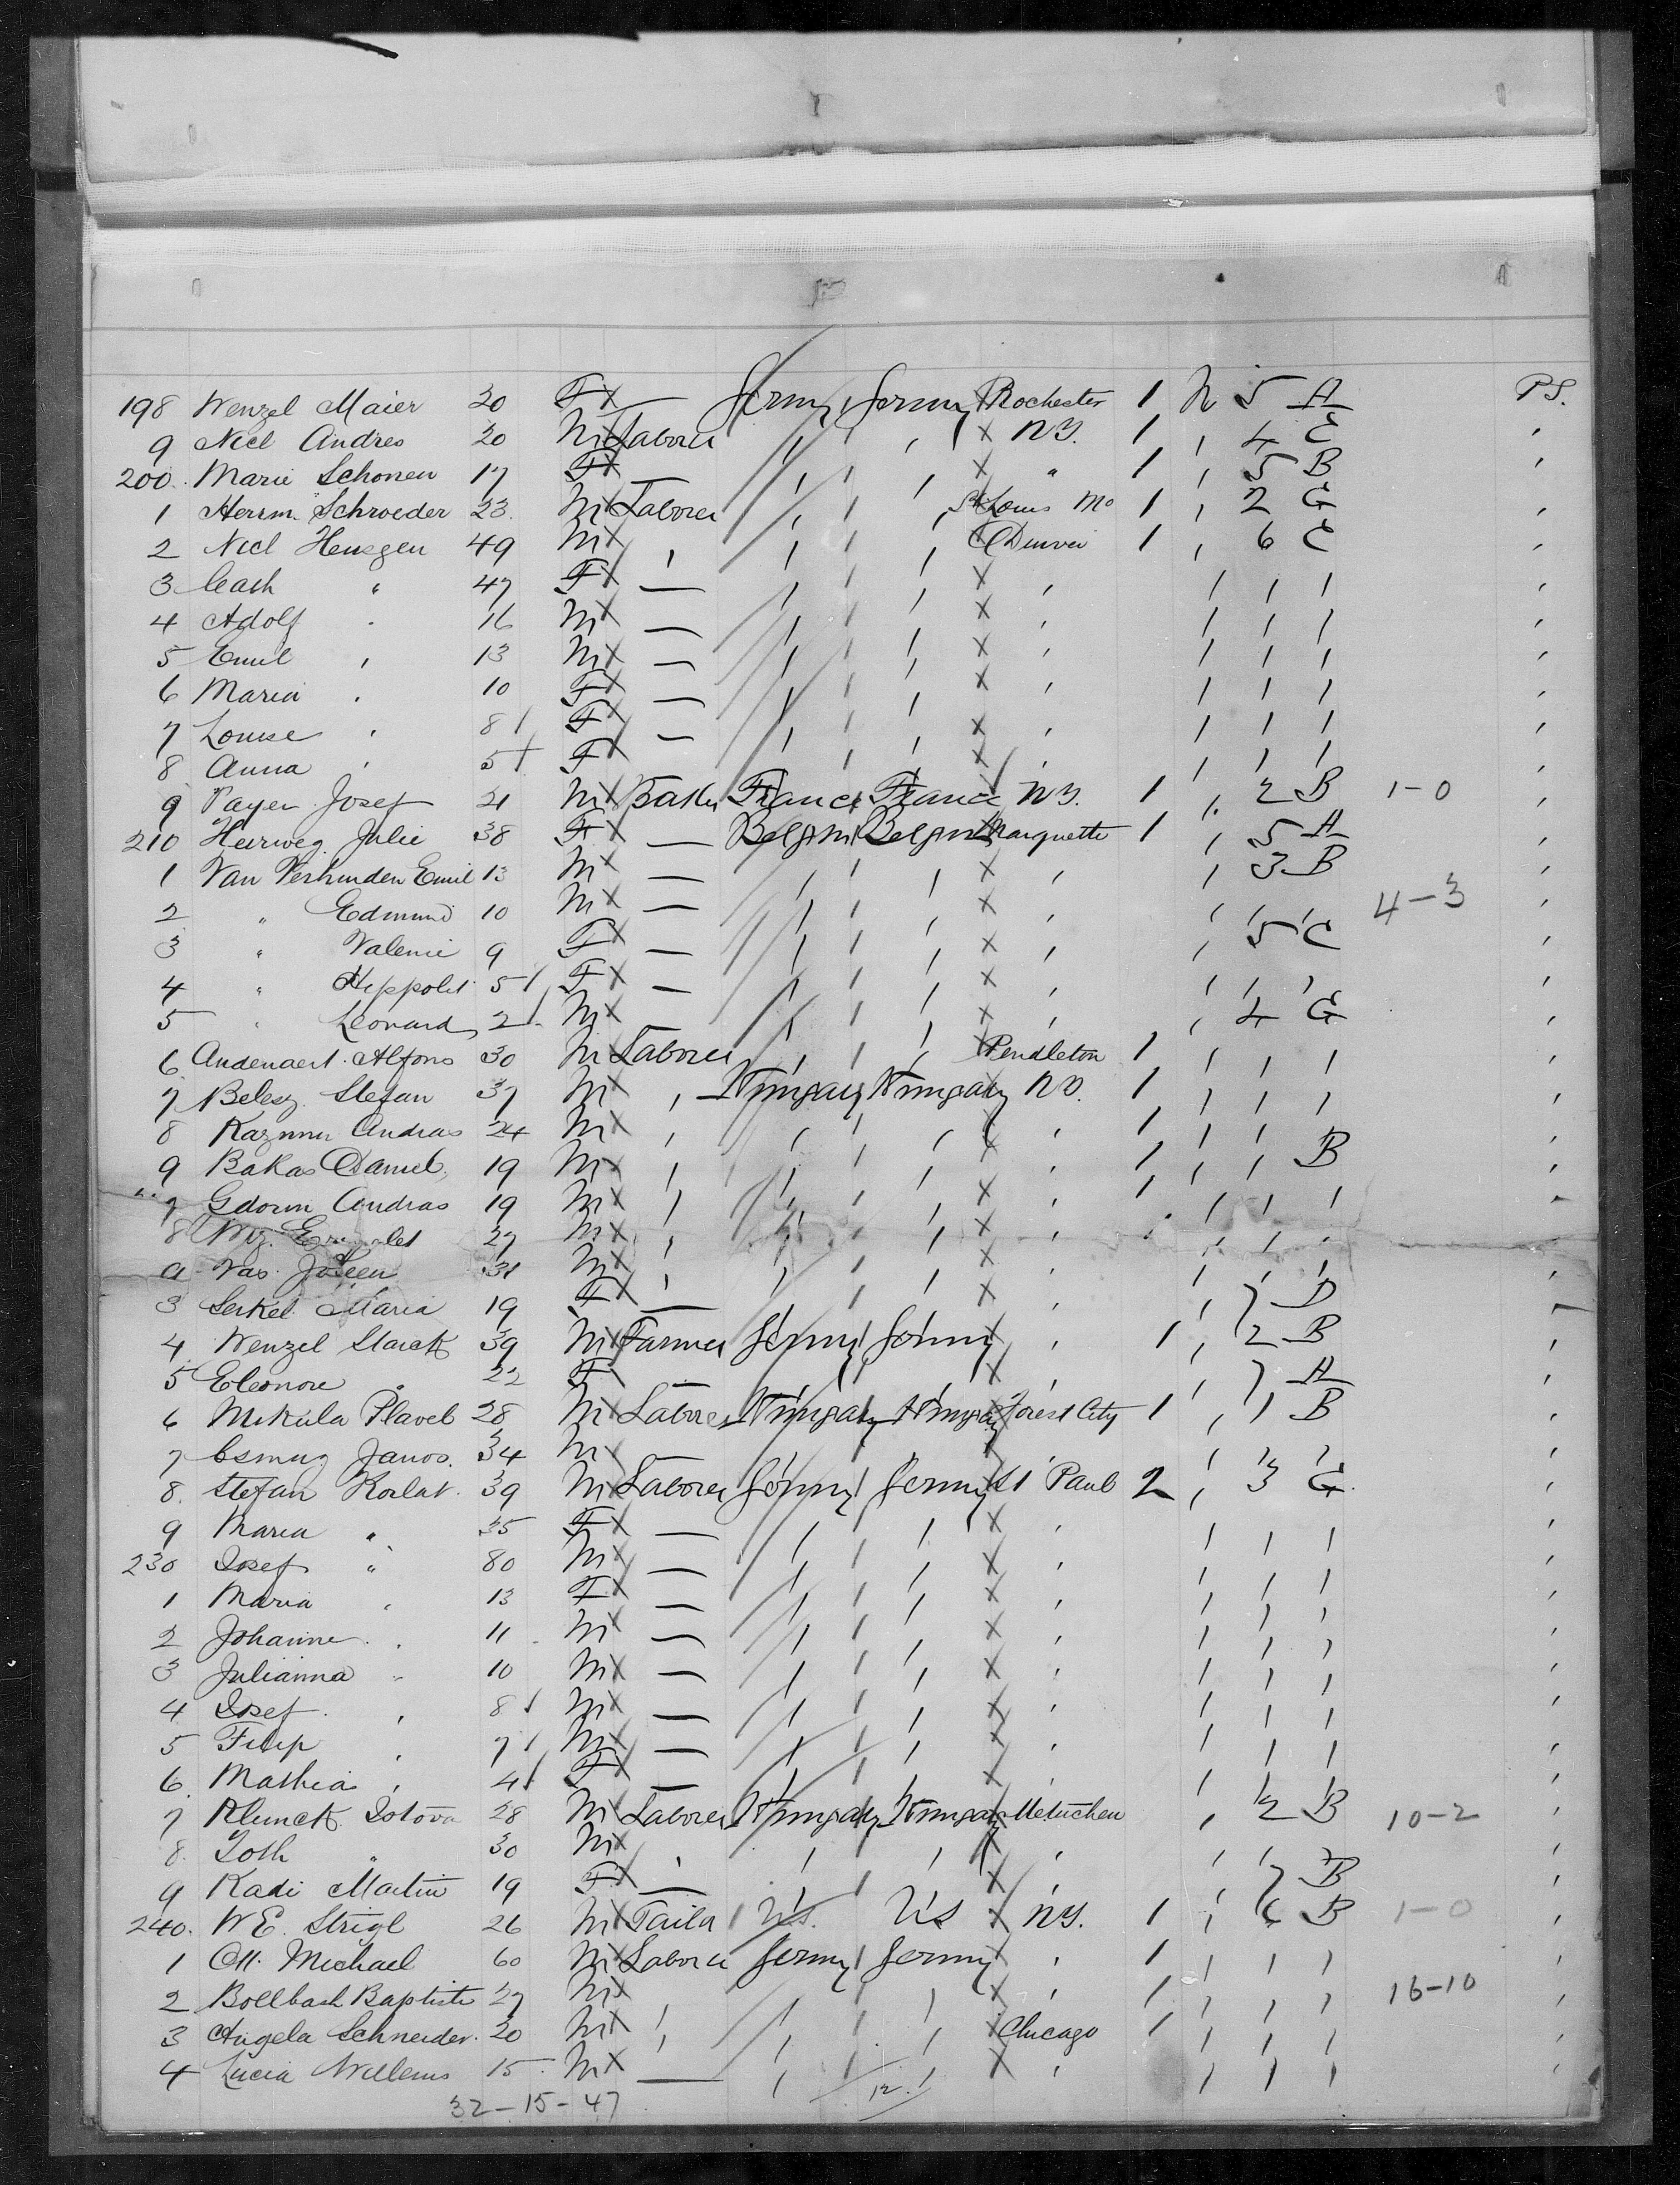 198 Wenzel Maier 20 F — Germy Germy Rochester 1 N 5 A P.S.
9 Nicl Andres 20 M Laborer " " " N.Y. 1 " 4 E "
200. Marie Schonen 17 F — " " " " 1 " 5 B "
1 Herrm. Schroeder 23. M Laborer " " " St Louis Mo 1 " 2 G "
2 Nicl Hensgen 49 M " " " " Denver 1 " 6 E "
3 Cath " 47 F — " " " " " " " "
4 Adolf " 16 M — " " " " " " " "
5 Emil " 13 M — " " " " " " " "
6 Maria " 10 F — " " " " " " " "
7 Louise " 8 F — " " " " " " " "
8 Anna " 5 F — " " " " " " " "
9 Payer Josef 21 M Baker France France N.Y. 1 " 2 B 1-0 "
210 Heirweg. Julie 38 F — Belgm Belgm Marquette 1 " 5 A "
1 Van Verhinden Emil 13 M — " " " " " 3 B "
2 " Edmund 10 M — " " " " " " " 4-3 "
3 " Valenie 9 F — " " " " " 5 C "
4 " Hippolit 5 F — " " " " " " " "
5 " Leonard 2 M — " " " " " 4 G "
6 Andenaert. Alfons 30 M Laborer " " " Pendleton 1 " " " "
7 Belesz. Stefan 37 M " Hungary Hungary N.Y. 1 " " " "
8 Kazmer Andras 24 M " " " " " 1 " " " "
9 Bakas Daniel 19 M " " " " " 1 " " B "
Gdorin Andras 19 M " " " " " 1 " " " "
27 M " " " " " " " "
Vas 31 M " " " " " " " "
3 Serkel Maria 19 F — " " " " " 7 D
4 Wenzel Starck 39 M Farmer Germy Germy " 1 " 2 B "
5 Eleonore " 22 F — " " " " " 7 A "
6 Mikula Plaveb 28 M Laborer Hungary Hungary Forest City 1 " 1 B "
7 Csmug Janos. 34 M " " " " " "
8. Stefan Korlat. 39 M Laborer Germy Germy St Paul 2 " 3 G. "
9 Maria " 35 F — " " " " " " " "
230 Josef " 80 M — " " " " " " " "
1 Maria " 13 F — " " " " " " " "
2 Johanne " 11 M — " " " " " " " "
3 Julianna " 10 M — " " " " " " " "
4 Josef " 8 M — " " " " " " " "
5 Filip " 7 M — " " " " " " " "
6. Mathias " 4 F — " " " " " " " "
7 Klunck. 28 M Laborer Hungary Hungary Metuchen " 2 B 10-2 "
8. Toth " 30 M " " " " " " " "
9 Kadi Martin 19 F — " " " " " 7 B "
240. W E. Strigl 26 M Tailor U.S. U.S N.Y. 1 " 6 B 1-0 "
1 Ott. Michael 60 M Laborer Germy Germy " 1 " " " "
2 Bollbach Baptiste 27 M " " " " " 1 " " " 16-10 "
3 Angela Schneider. 20 M " " " " Chicago 1 " " " "
4 Lucia Willems 15 M — " " " " " " " "
32-15-47 12.